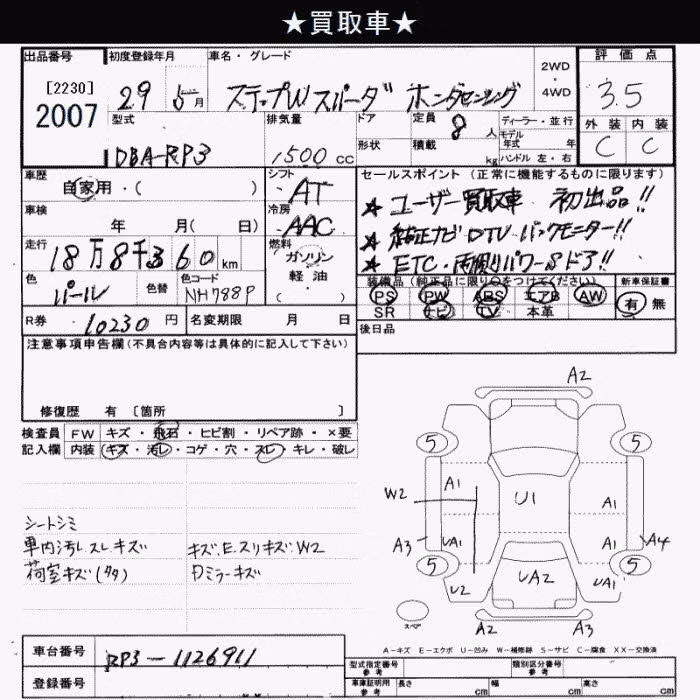 ★買取車★
出品番号 初度登録年月 車名・グレード 2WD・4WD 評価点
[2230]
2007
29 5月 ステップWスパーダ ホンダセンシング 3.5
型式 排気量 ドア 定員 8人 ディーラー・並行 外装 内装
モデル年式 年 C C
DBA-RP3 1500cc 形状 積載 kg ハンドル 左・右
車歴 シフト セールスポイント(正常に機能するものに限ります)
自家用・( ) AT ★ユーザー買取車 初出品!!
車検 冷房
年 月( 日) AAC ★純正ナビDTV・バックモニター!!
走行 燃料
18万8千360km ガソリン ★ETC・両側パワーSドア!!
色 色替 色コード 軽油 装備品(純正品に限り○をつけてください) 新車保証書
パール NH788P ( ) PS PW ABS エアB AW 有 無
SR ナビ TV 本革
R券 10230円 名変期限 月 日 後日品
注意事項申告欄(不具合内容等は具体的に記入して下さい)
修復歴 有 〔箇所 〕
検査員 FW キズ・飛石・ヒビ割・リペア跡・×要
記入欄 内装 キズ・汚レ・コゲ・穴・スレ・キレ・破レ
シートシミ
車内汚レスレキズ キズ.E.スリキズ.W2
荷室キズ(タタ) Dミラーキズ
A2
5 5
A1 A1
W2 U1
A3 UA1 A1 A4
5 5
U2 UA2 UA1
スペア A2 A3
A-キズ E-エクボ U-凹み W-補修跡 S-サビ C-腐食 XX-交換済
車台番号 RP3-1126911
型式指定番号 参考 類別区分番号 参考
登録番号 車庫証明用 参考 長さ cm 幅 cm 高さ cm